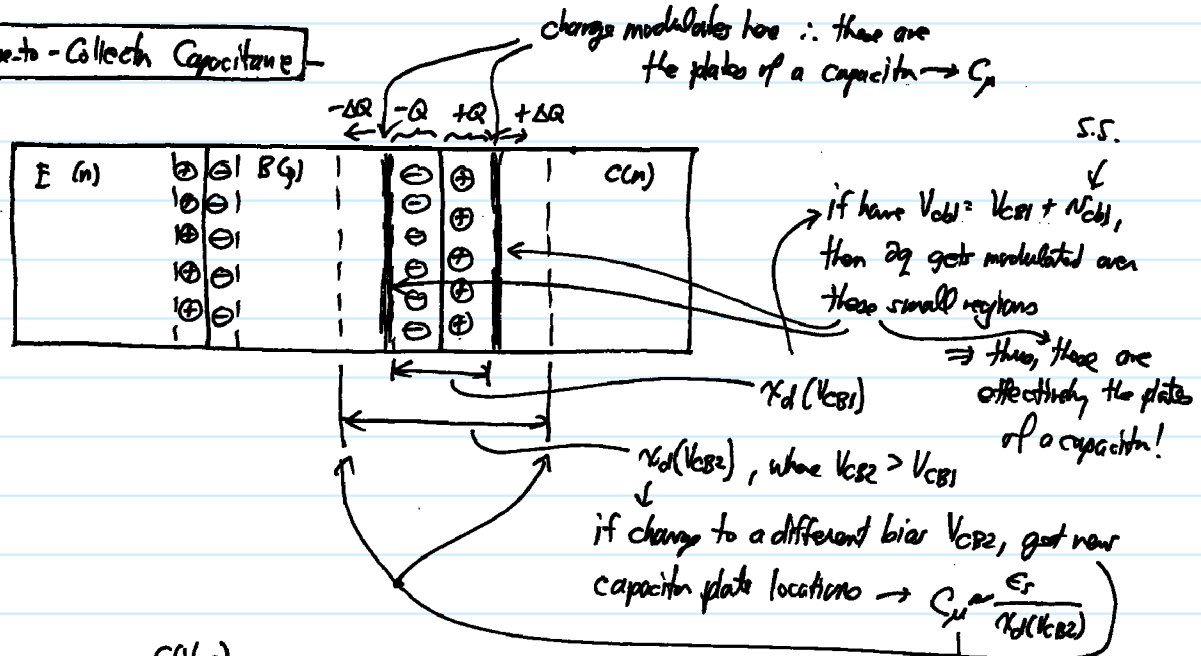 se-to-Collectn Capacitance
charge modulates here ∴ these are
the plates of a capacitor → Cμ
-ΔQ -Q +Q +ΔQ
S.S.
E (n) B(p) C(n)
if have Vcb1 = VCB1 + vcb1,
then ∂q gets modulated over
these small regions
⇒ thus, these are
effectively the plates
of a capacitor!
xd(VCB1)
xd(VCB2), where VCB2 > VCB1
if change to a different bias VCB2, get new
capacitor plate locations → Cμ ~ εs / xd(VCB2)